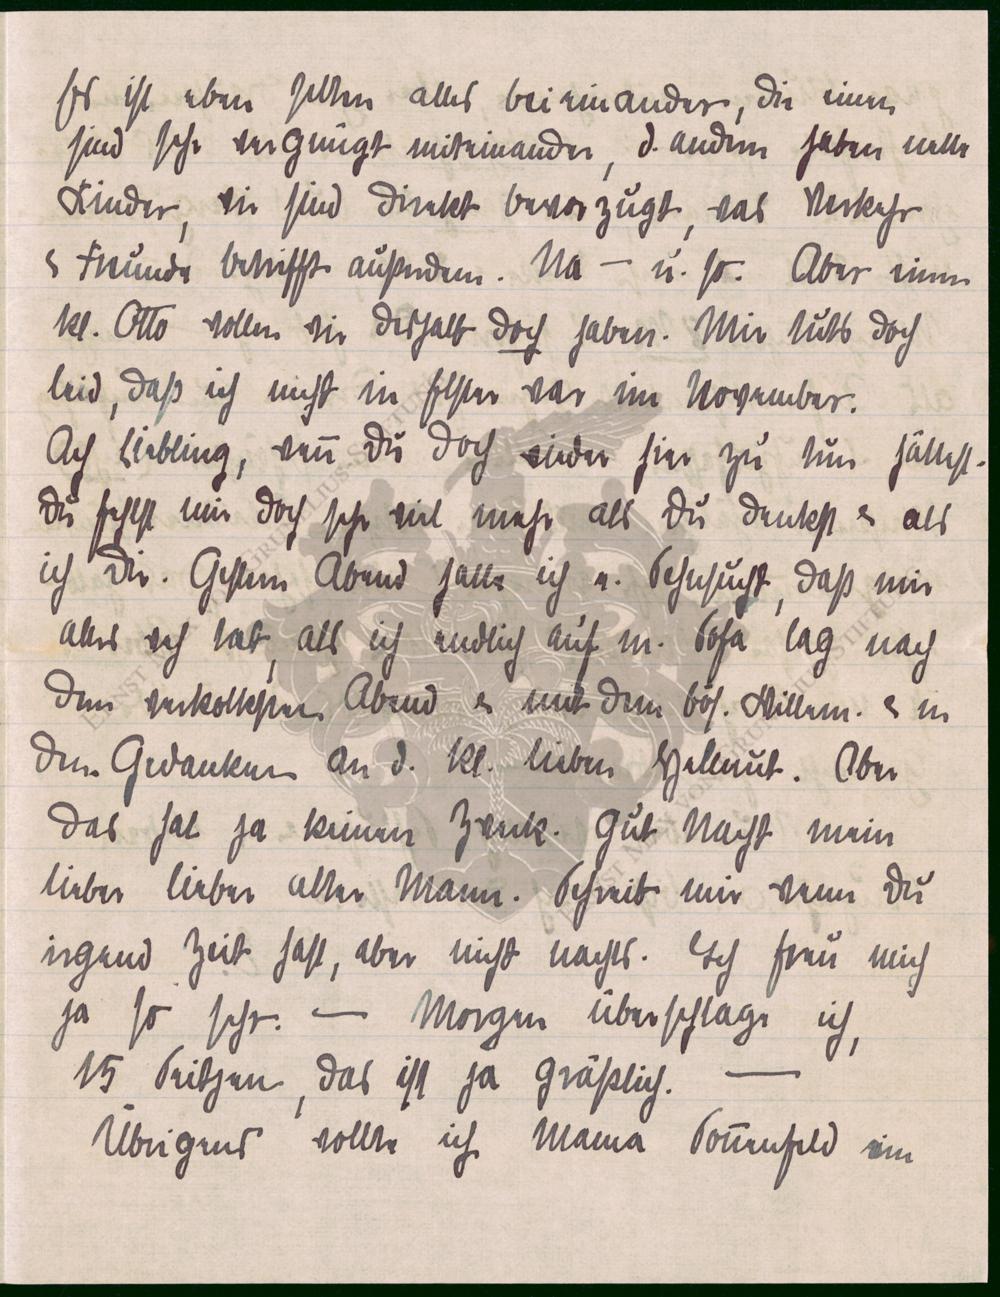 Es ist eben selten alles beieinander, die einen
sind sehr vergnügt miteinander, d. andern haben nette
Kinder, wir sind direkt bevorzugt, was Verkehr
& Freunde betrifft außerdem. Na — u. so. Aber einen
kl. Otto wollen wir deshalb doch haben. Mir tuts doch
leid, daß ich nicht in Elster war im November.
Ach Liebling, weñ Du doch wieder hier zu tun hättest.
Du fehlst mir doch sehr viel mehr als Du denkst & als
ich Dir. Gestern Abend hatte ich n. Sehnsucht, daß mir
alles weh tat, als ich endlich auf m. Sofa lag nach
dem verkorksten Abend & mit dem bös. Willem. & in
den Gedanken an d. kl. lieben Hellmut. Aber
das hat ja keinen Zweck. Gut Nacht mein
lieber lieber alter Mann. Schreib mir wenn Du
irgend Zeit hast, aber nicht nachts. Ich freu mich
ja so sehr. — Morgen überschlage ich,
15 Seiten, das ist ja gräßlich. —
Übrigens wollte ich Mama Soñenfeld ein
ERNST GRUMBELIUS-STIFTUNG